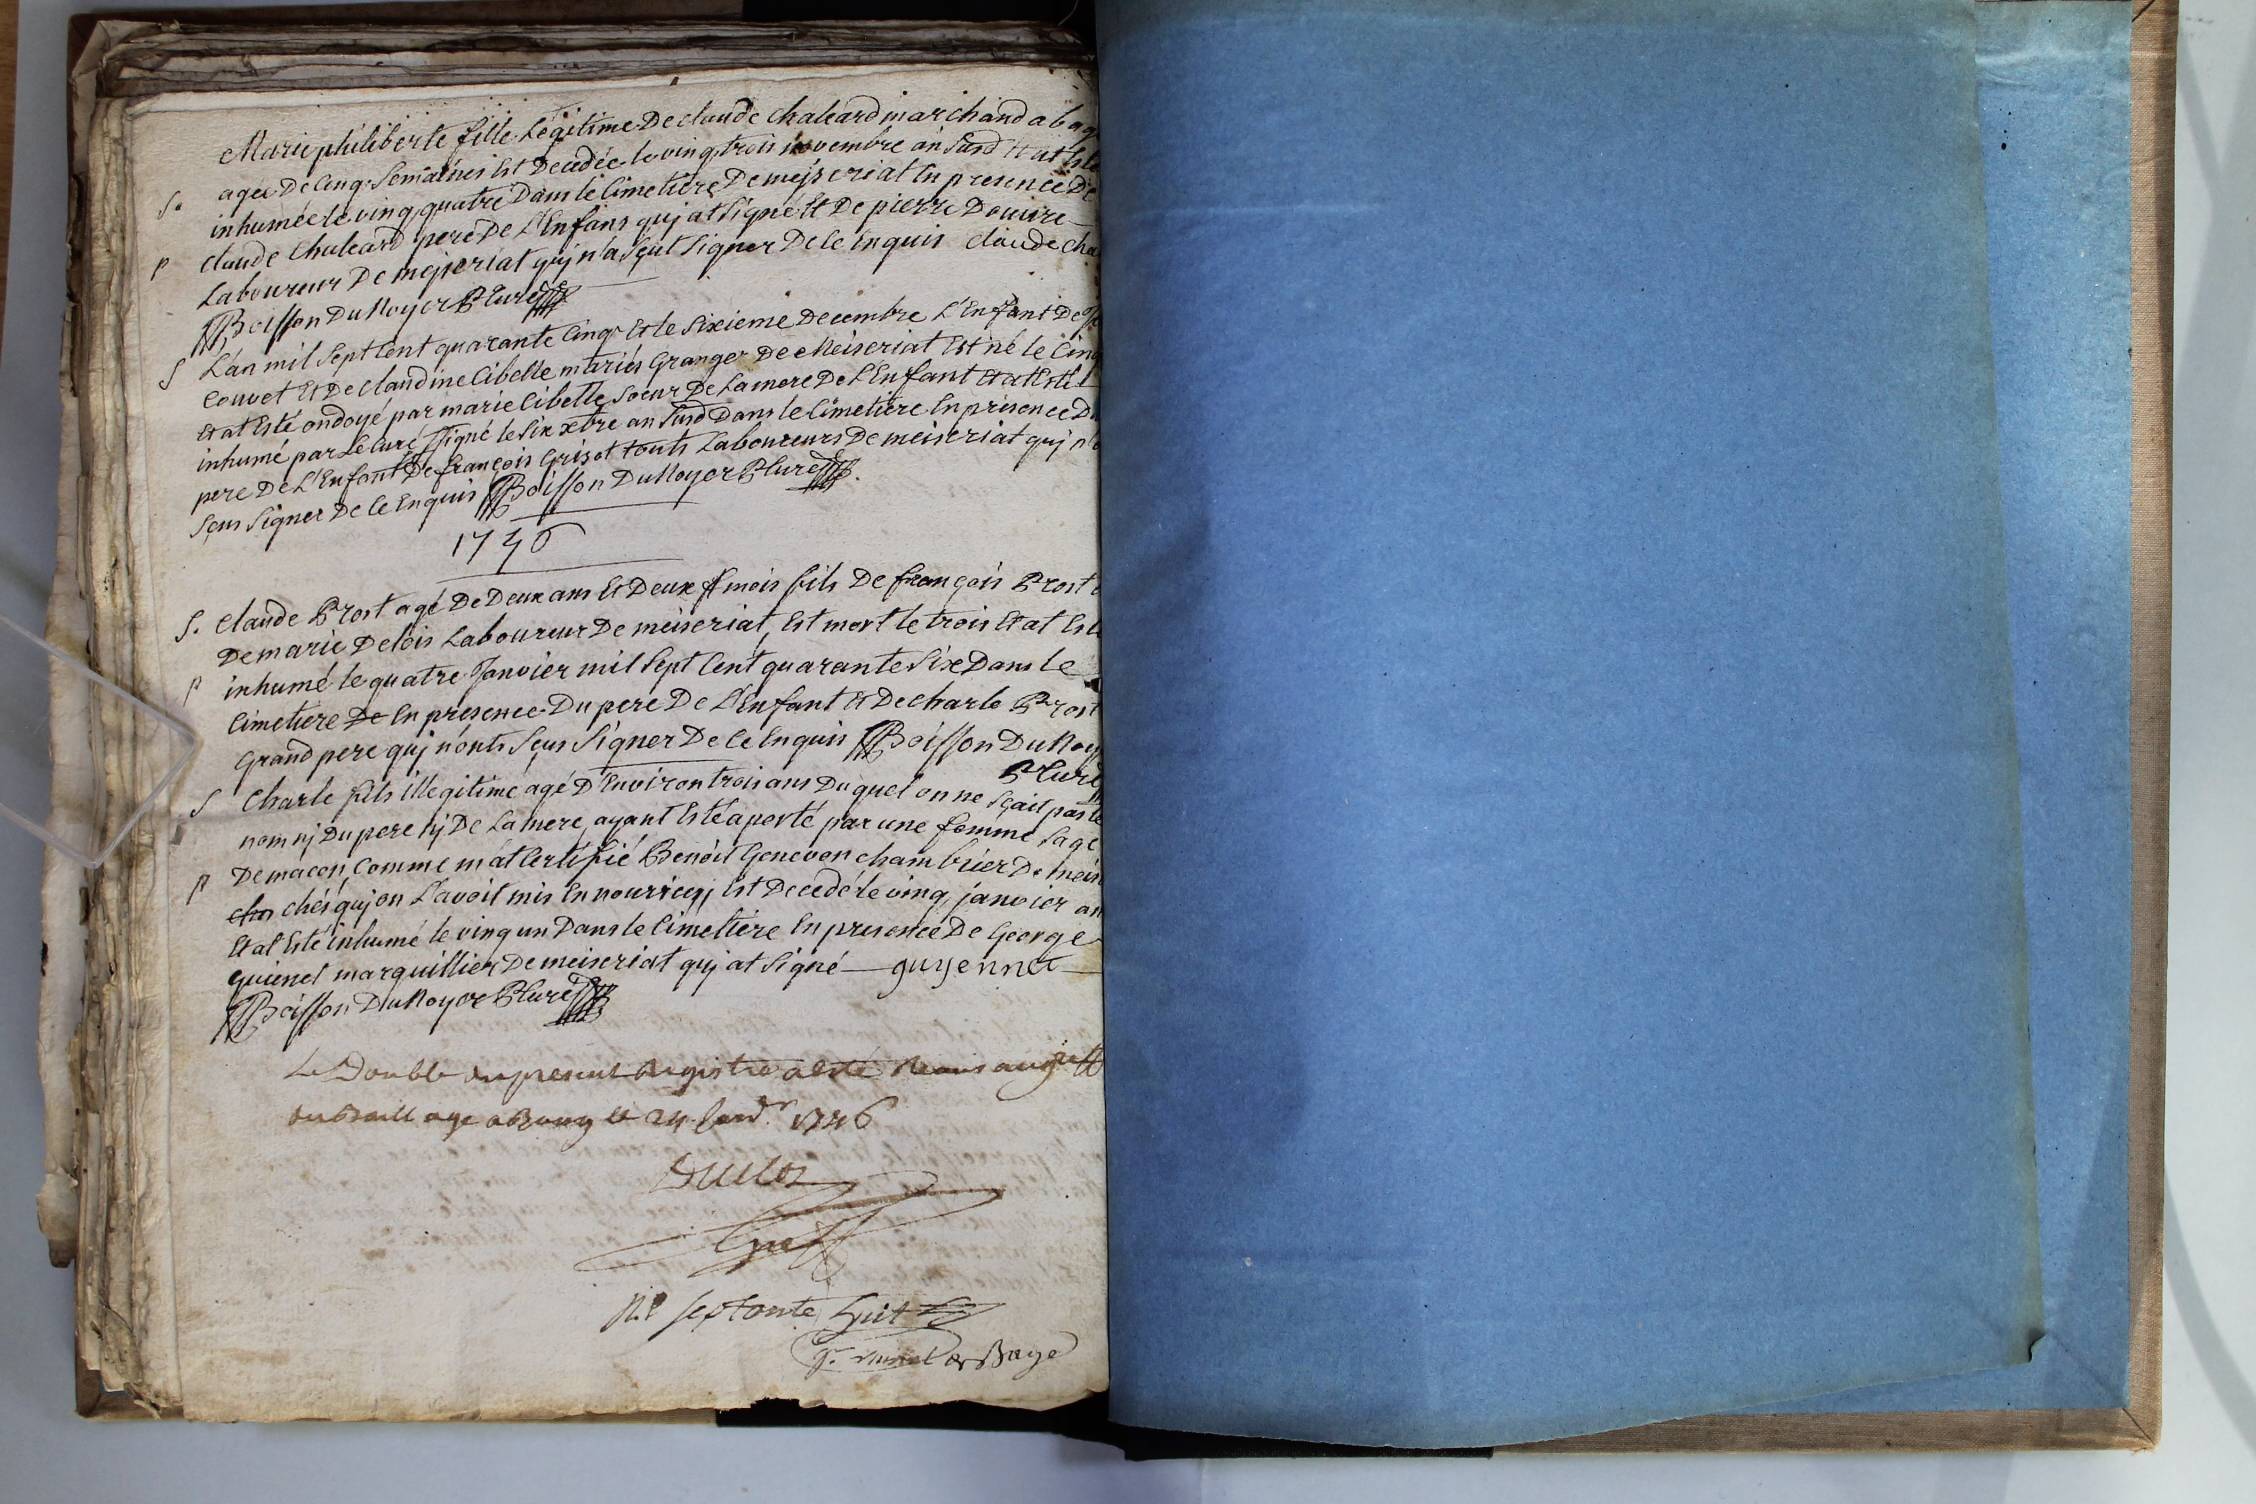 Marie philiberte fille Legitime De claude chaleard marchand a bag
S. agee De cinq Semaines Est Decedée le vingt trois novembre an Susd Et at Esté
inhumée le vingt quatre Dans le Cimetiere De mejseriat En presence De
p claude Chaleard pere De L'Enfans quj at Signe Et De pierre Douvre
Laboureur De mejseriat quj n'a Sçut Signer De ce Enquis claude cha
Boisson DuNoyer P Curé
S L'an mil Sept Cent quarante Cinq Et le Sixieme Decembre L'Enfant De
Couvet Et De claudine Cibelle mariés Granger De Meiseriat Est né le Cinq
Et at Esté ondoyé par marie Cibelle Soeur De La mere De L'Enfant Et at Esté
inhumé par Le Curé Signé le Six xbre an Susd Dans le Cimetiere En presence Du
pere De L'Enfant De françois Grisot touts Laboureurs De meiseriat quj n'o
Sçus Signer De ce Enquis Boisson DuNoyer P Curé
1746
S. claude Prost agé De Deux ans Et Deux mois fils De françois Prost e
De marie Delois Laboureur De meiseriat, Est mort le trois Et at Esté
p inhumé le quatre Janvier mil Sept Cent quarante Six Dans le
Cimetiere De En presence Du pere De L'Enfant Et De charle Prost
Grand pere quj n'onts Sçus Signer De ce Enquis Boisson DuNoy
P Curé
S Charle fils illegitime agé D'Environ trois ans Duquel on ne Sçait pas le
nom nj Du pere nj De La mere, ayant Esté aporté par une femme Sage
De macon, Comme m'at Certifié Benoit Genevon chambrier De meis
p ches chés quj on L'avoit mis En nourice, Est Decedé le vingt janvier an
Et at Esté inhumé le vingt un Dans le Cimetiere En presence De George
Guienet marguillier De meiseriat quj at Signé guyennet
Boisson DuNoyer P Curé
Le Double du present Registre a esté Remis au greff
du Baillage a Bourg le 24 1746
Duclos
Greff
septante huit
de Bage